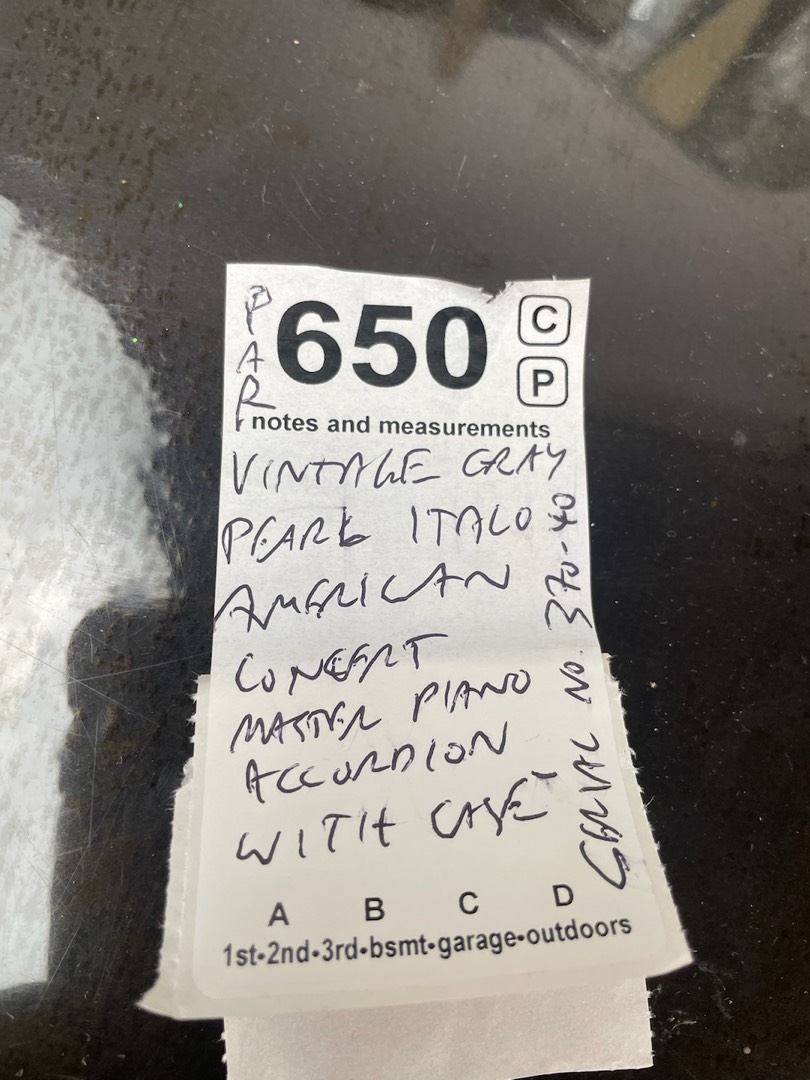 PAR
650
C
P
notes and measurements
VINTAGE GRAY
PEARL ITALO
AMERICAN
CONCERT
MASTER PIANO
ACCORDION
WITH CASE
SERIAL NO. 370-40
A B C D
1st•2nd•3rd•bsmt•garage•outdoors